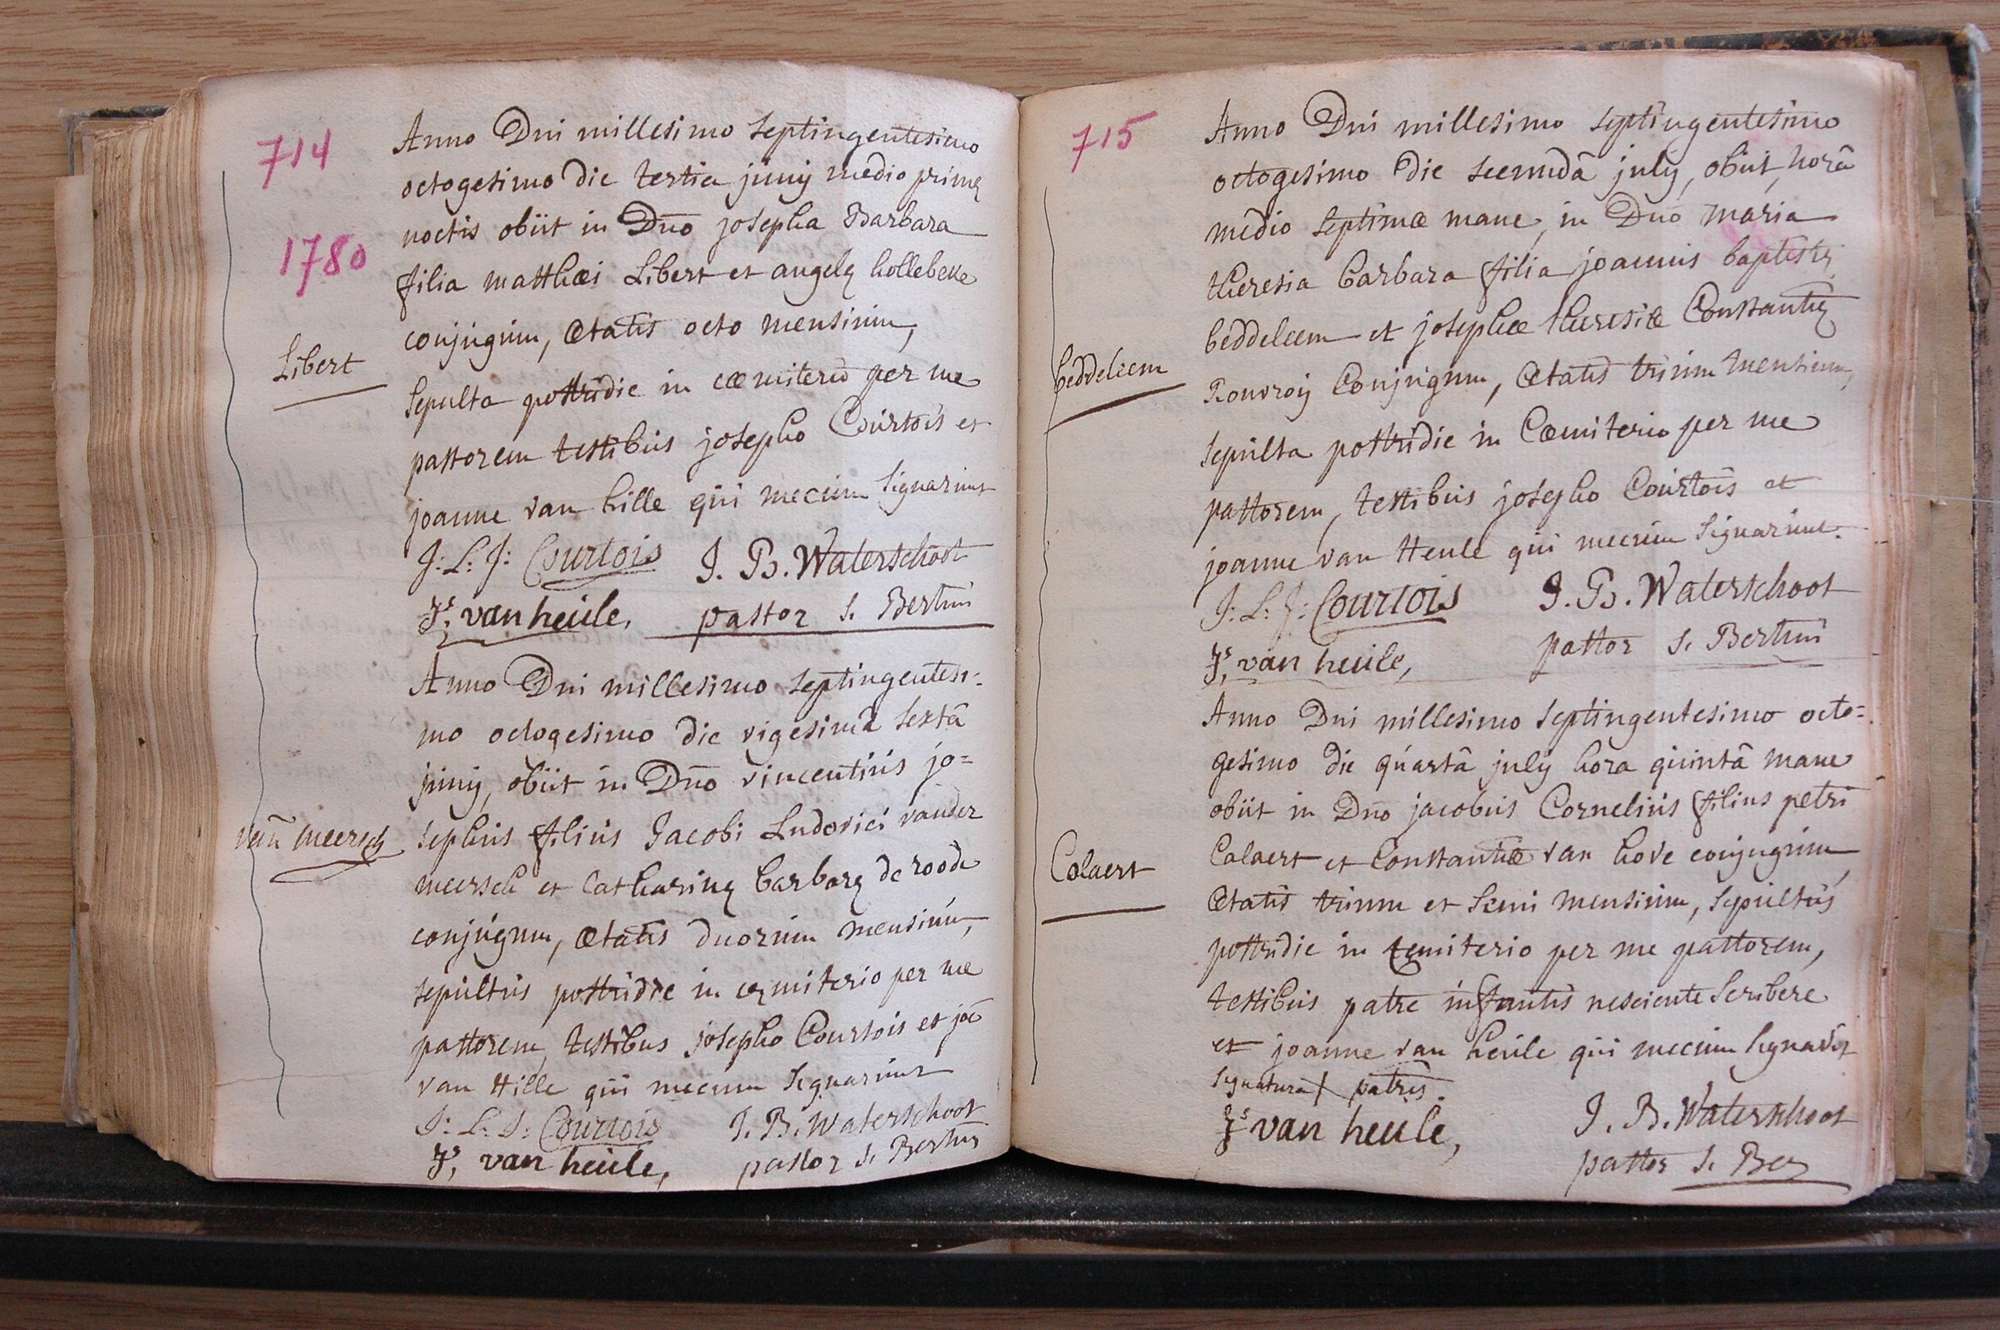 714
1780
Anno Dni millesimo septingentesimo
octogesimo die tertia junij medio primę
noctis obiit in Dno josepha Barbara
filia matthæi Libert et angelę hollebeke
conjugum, ætatis octo mensium,
Libert
sepulta postridie in cœmiterio per me
pastorem testibus josepho Courtois et
joanne van hille qui mecum signarunt
J: L: J: Courtois J. B. Waterschoot
Js van heule, pastor s. Bertini
Anno Dni millesimo septingentesi-
mo octogesimo die vigesimâ sextâ
junij, obiit in Dno vincentius jo=
van meersch
sephus filius Jacobi Ludovici vander
meersch et Catharinę barbarę de roode
conjugum, ætatis duorum mensium,
sepultus postridie in cęmiterio per me
pastorem, testibus josepho Courtois et joē
van Hille qui mecum signarunt
J: L: J: Courtois J. B. Waterschoot
Js, van heule, pastor s. Bertini
715
Anno Dni millesimo septingentesimo
octogesimo die secundâ july, obiit, horâ
medio septimæ mane, in Dno maria
theresia barbara filia joannis baptistę
beddeleem et josephæ theresiæ Constantię
beddeleem
Ronvroij Conjugum, ætatis trium mensium,
sepulta postridie in Cœmiterio per me
pastorem, testibus josepho Courtois et
joanne van Heule qui mecum signarunt.
J: L: J: Courtois J. B. Waterschoot
Js, van heule, pastor s. Bertini
Anno Dni millesimo septingentesimo octo=
gesimo die quartâ july hora quintâ mane
obiit in Dno jacobus Cornelius filius petri
Colaert
Calaert et Constantiæ van hove conjugum,
ætatis trium et semi mensium, sepultus
postridie in cęmiterio per me pastorem,
testibus patre infantis nesciente scribere
et joanne van heule qui mecum signavit
signatura X patris.
Js van heule, J. B. Waterschoot
pastor s. Ber